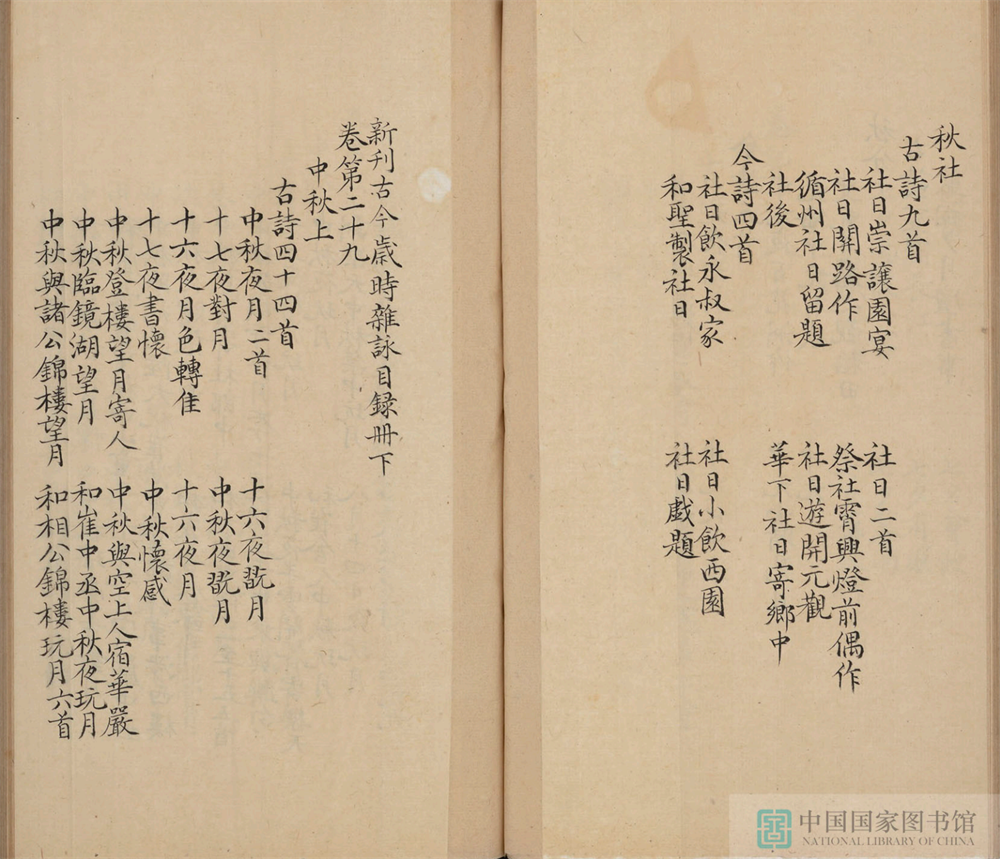 秋社
古詩九首
社日崇讓園宴 社日二首
社日關路作 祭社霄興燈前偶作
循州社日留題 社日遊開元觀
社後 華下社日寄鄉中
今詩四首
社日飲永叔家 社日小飲西園
和聖製社日 社日戲題
新刊古今歲時雜詠目録冊下
卷第二十九
中秋上
古詩四十四首
中秋夜月二首 十六夜翫月
十七夜對月 中秋夜翫月
十六夜月色轉佳 十六夜月
十七夜書懷 中秋懷感
中秋登樓望月寄人 中秋與空上人宿華嚴
中秋臨鏡湖望月 和崔中丞中秋夜玩月
中秋與諸公錦樓望月 和相公錦樓玩月六首
中国国家图书馆
NATIONAL LIBRARY OF CHINA